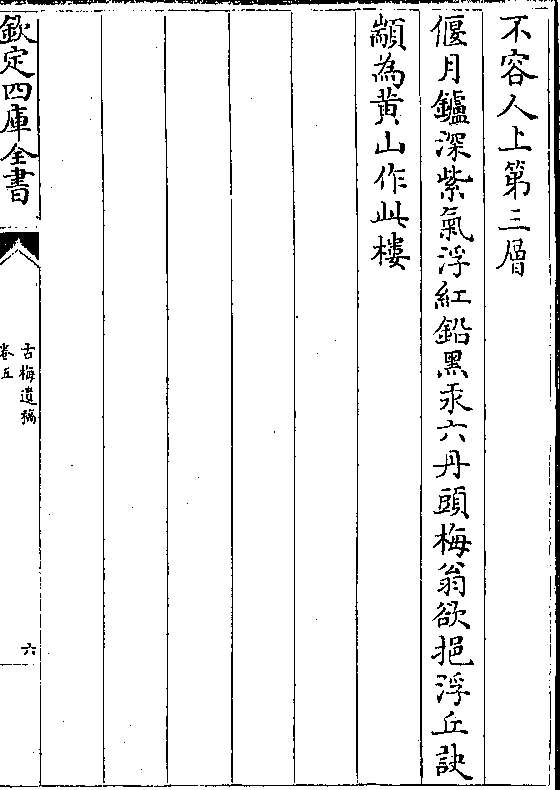 不容人上第三層
偃月鑪深紫氣浮紅鉛黒汞六丹頭梅翁欲挹浮丘訣
顓為黄山作此樓
欽定四庫全書
古梅遺稿
卷五
六